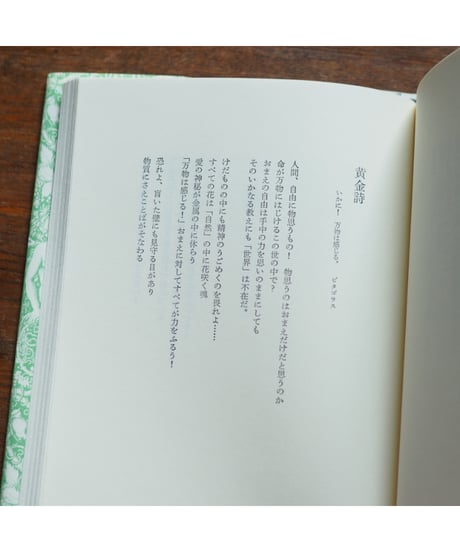 黄金詩
いかに! 万物は感じる。
ピタゴラス
人間、自由に物思うもの! 物思うのはおまえだけだと思うのか
命が万物にはじけるこの世の中で?
おまえの自由は手中の力を思いのままにしても
そのいかなる教えにも「世界」は不在だ。
けだものの中にも精神のうごめくのを畏れよ……
すべての花は「自然」の中に花咲く魂
愛の神秘が金属の中に休らう
「万物は感じる!」おまえに対してすべてが力をふるう!
恐れよ、盲いた壁にも見守る目があり
物質にさえことばがそなわる